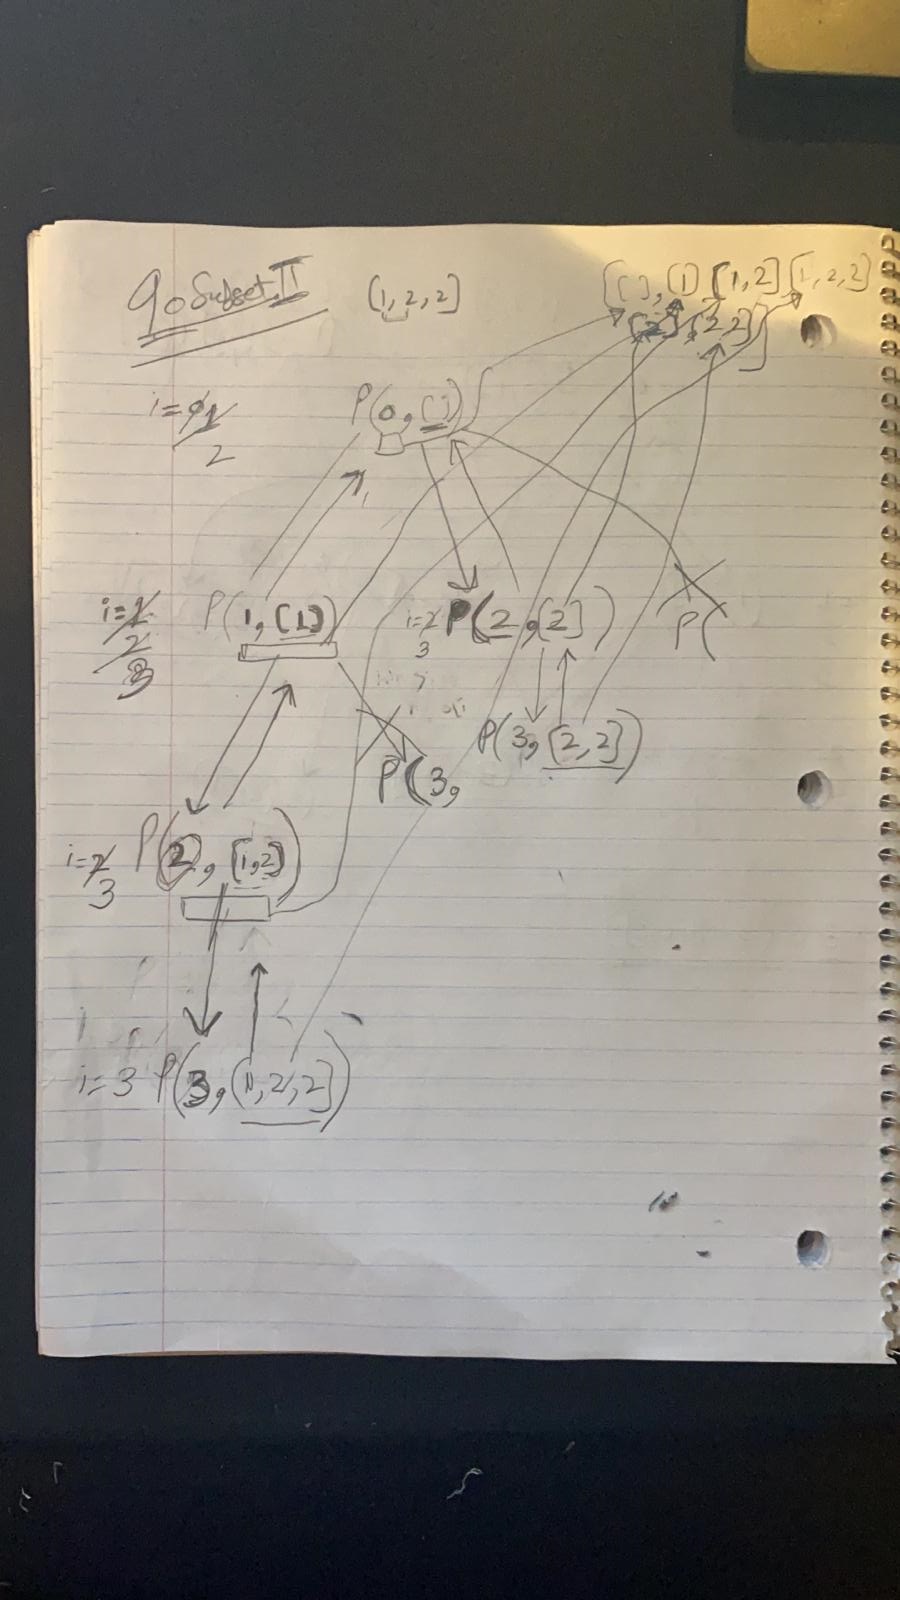 90 Subset II [1,2,2] [[],[1] [1,2] [1,2,2]
[2],[2,2]]
i=0 1 P(0,[])
2
i=1 P(1,[1]) i=2 P(2,[2]) P(
2 3
3
P(3,[2,2])
P(3,
i=2 P(2,[1,2])
3
i=3 P(3,[1,2,2])